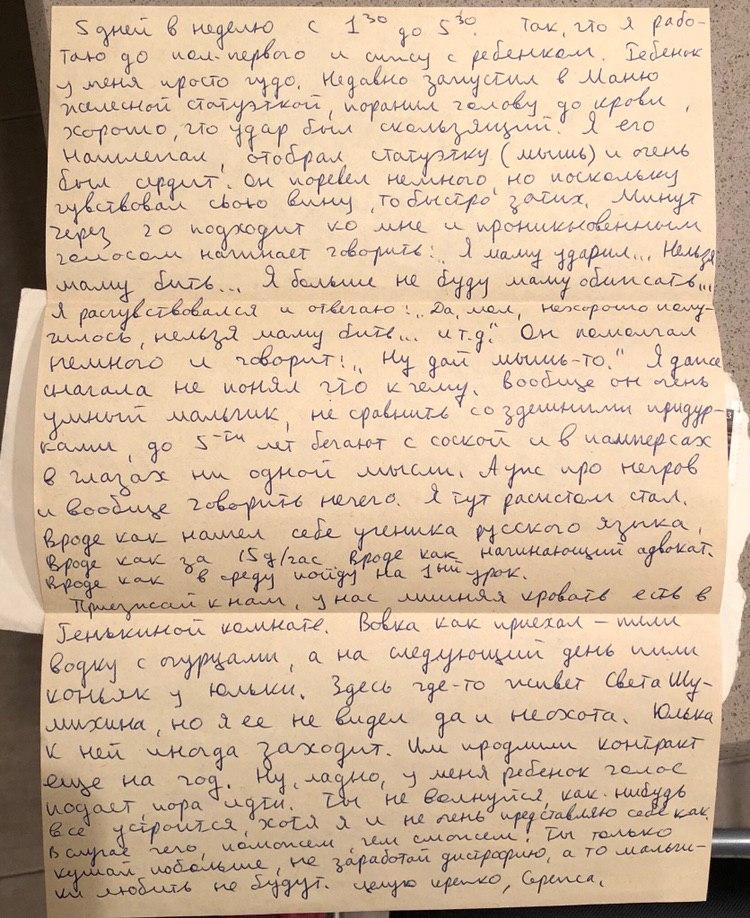 5 дней в неделю с 1³⁰ до 5³⁰. Так, что я рабо-
таю до пол-первого и сижу с ребенком. Ребенок
у меня просто чудо. Недавно запустил в Маню
железной статуэткой, поранил голову до крови,
хорошо, что удар был скользящий. Я его
нашлепал, отобрал статуэтку (мышь) и очень
был сердит. Он поревел немного, но поскольку
чувствовал свою вину, то быстро затих. Минут
через 20 подходит ко мне и проникновенным
голосом начинает говорить: „Я маму ударил... Нельзя
маму бить... Я больше не буду маму обижать...
Я расчувствовался и отвечаю: „Да, мол, нехорошо полу-
чилось, нельзя маму бить... и т.д." Он помолчал
немного и говорит: „Ну дай мышь-то." Я даже
сначала не понял что к чему. Вообще он очень
умный мальчик, не сравнить со здешними придур-
ками, до 5-ти лет бегают с соской и в памперсах
в глазах ни одной мысли. А уж про негров
и вообще говорить нечего. Я тут расистом стал.
Вроде как нашел себе ученика русского языка,
Вроде как за 15д/час вроде как начинающий адвокат.
Вроде как в среду пойду на 1ый урок.
Приезжай к нам, у нас лишняя кровать есть в
Генькиной комнате. Вовка как приехал – пили
водку с огурцами, а на следующий день пили
коньяк у Юльки. Здесь где-то живет Света Шу-
михина, но я ее не видел да и неохота. Юлька
к ней иногда заходит. Им продлили контракт
еще на год. Ну, ладно, у меня ребенок голос
подает, пора идти. Ты не волнуйся, как-нибудь
все устроится, хотя я и не очень представляю себе как.
В случае чего, поможем, чем сможем. Ты только
кушай побольше, не заработай дистрофию, а то мальчи-
ки любить не будут. Целую крепко, Сережа.